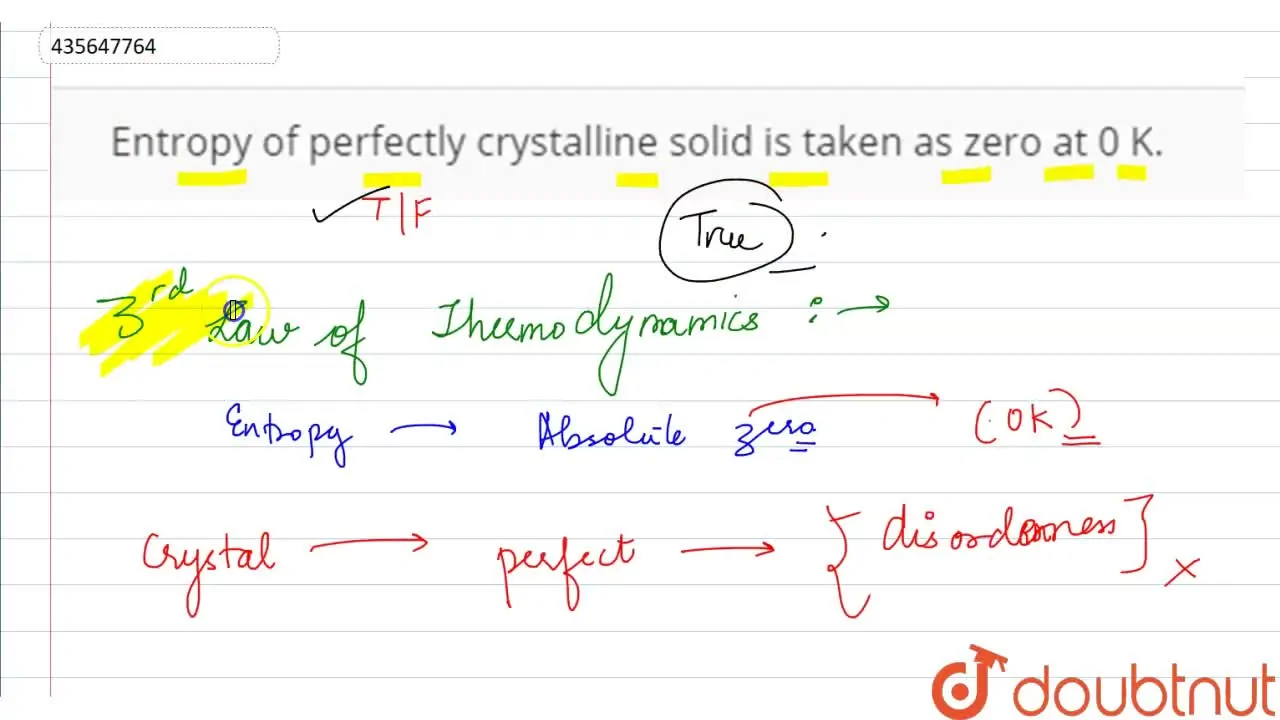 435647764
Entropy of perfectly crystalline solid is taken as zero at 0 K.
T/F
True
3rd Law of Thermodynamics :→
Entropy → Absolute zero → (0K)
Crystal → perfect → { disorderness ] x
doubtnut